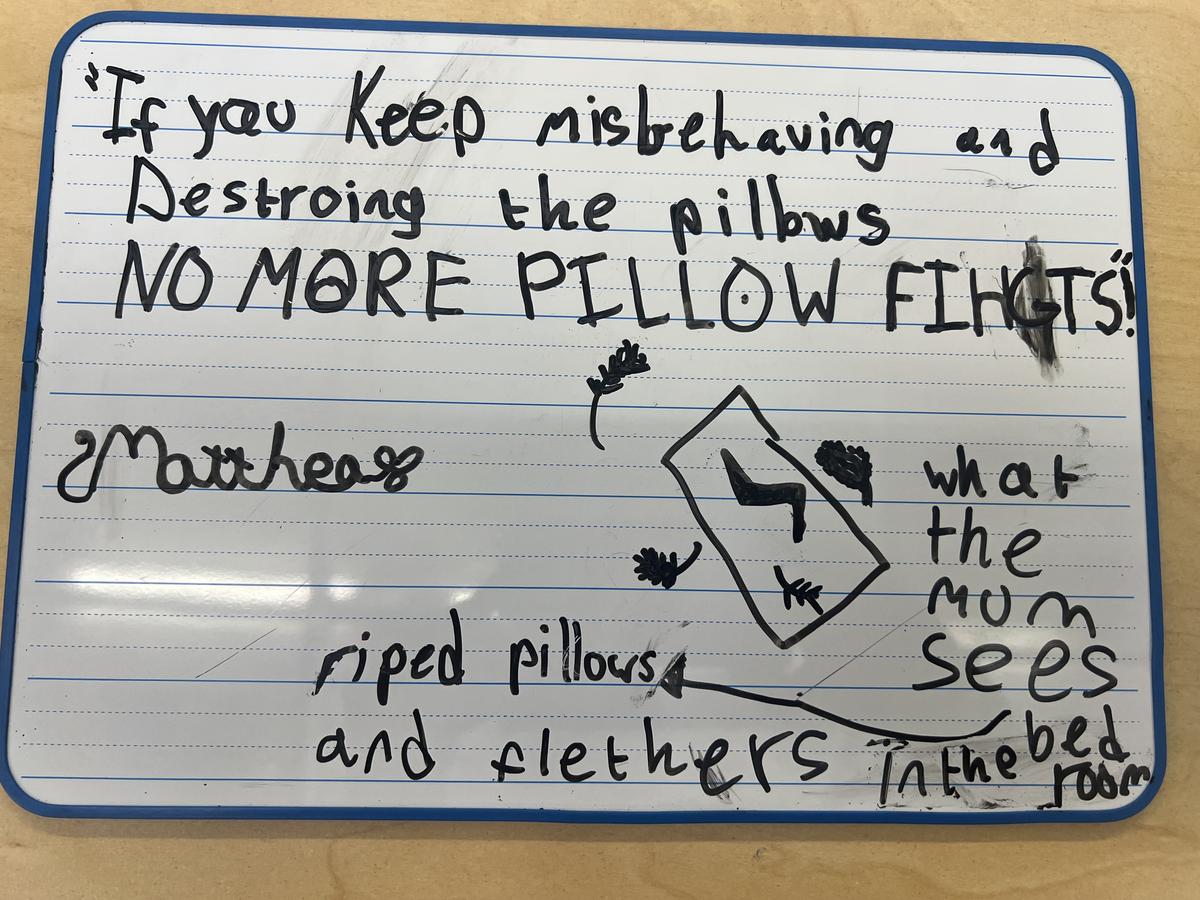 "If you Keep misbehaving and
Destroing the pillows
NO MORE PILLOW FIHGTS"!
Mattheas
what
the
mum
sees
in the bed
room
riped pillows
and flethers